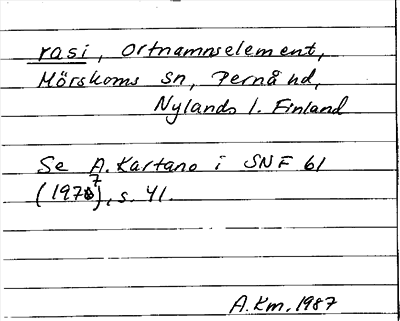 rasi, Ortnamnselement,
Mörskoms sn, Pernå hd,
Nylands l. Finland
Se A. Kartano i SNF 61
(1977), s. 41.
A.Km. 1987